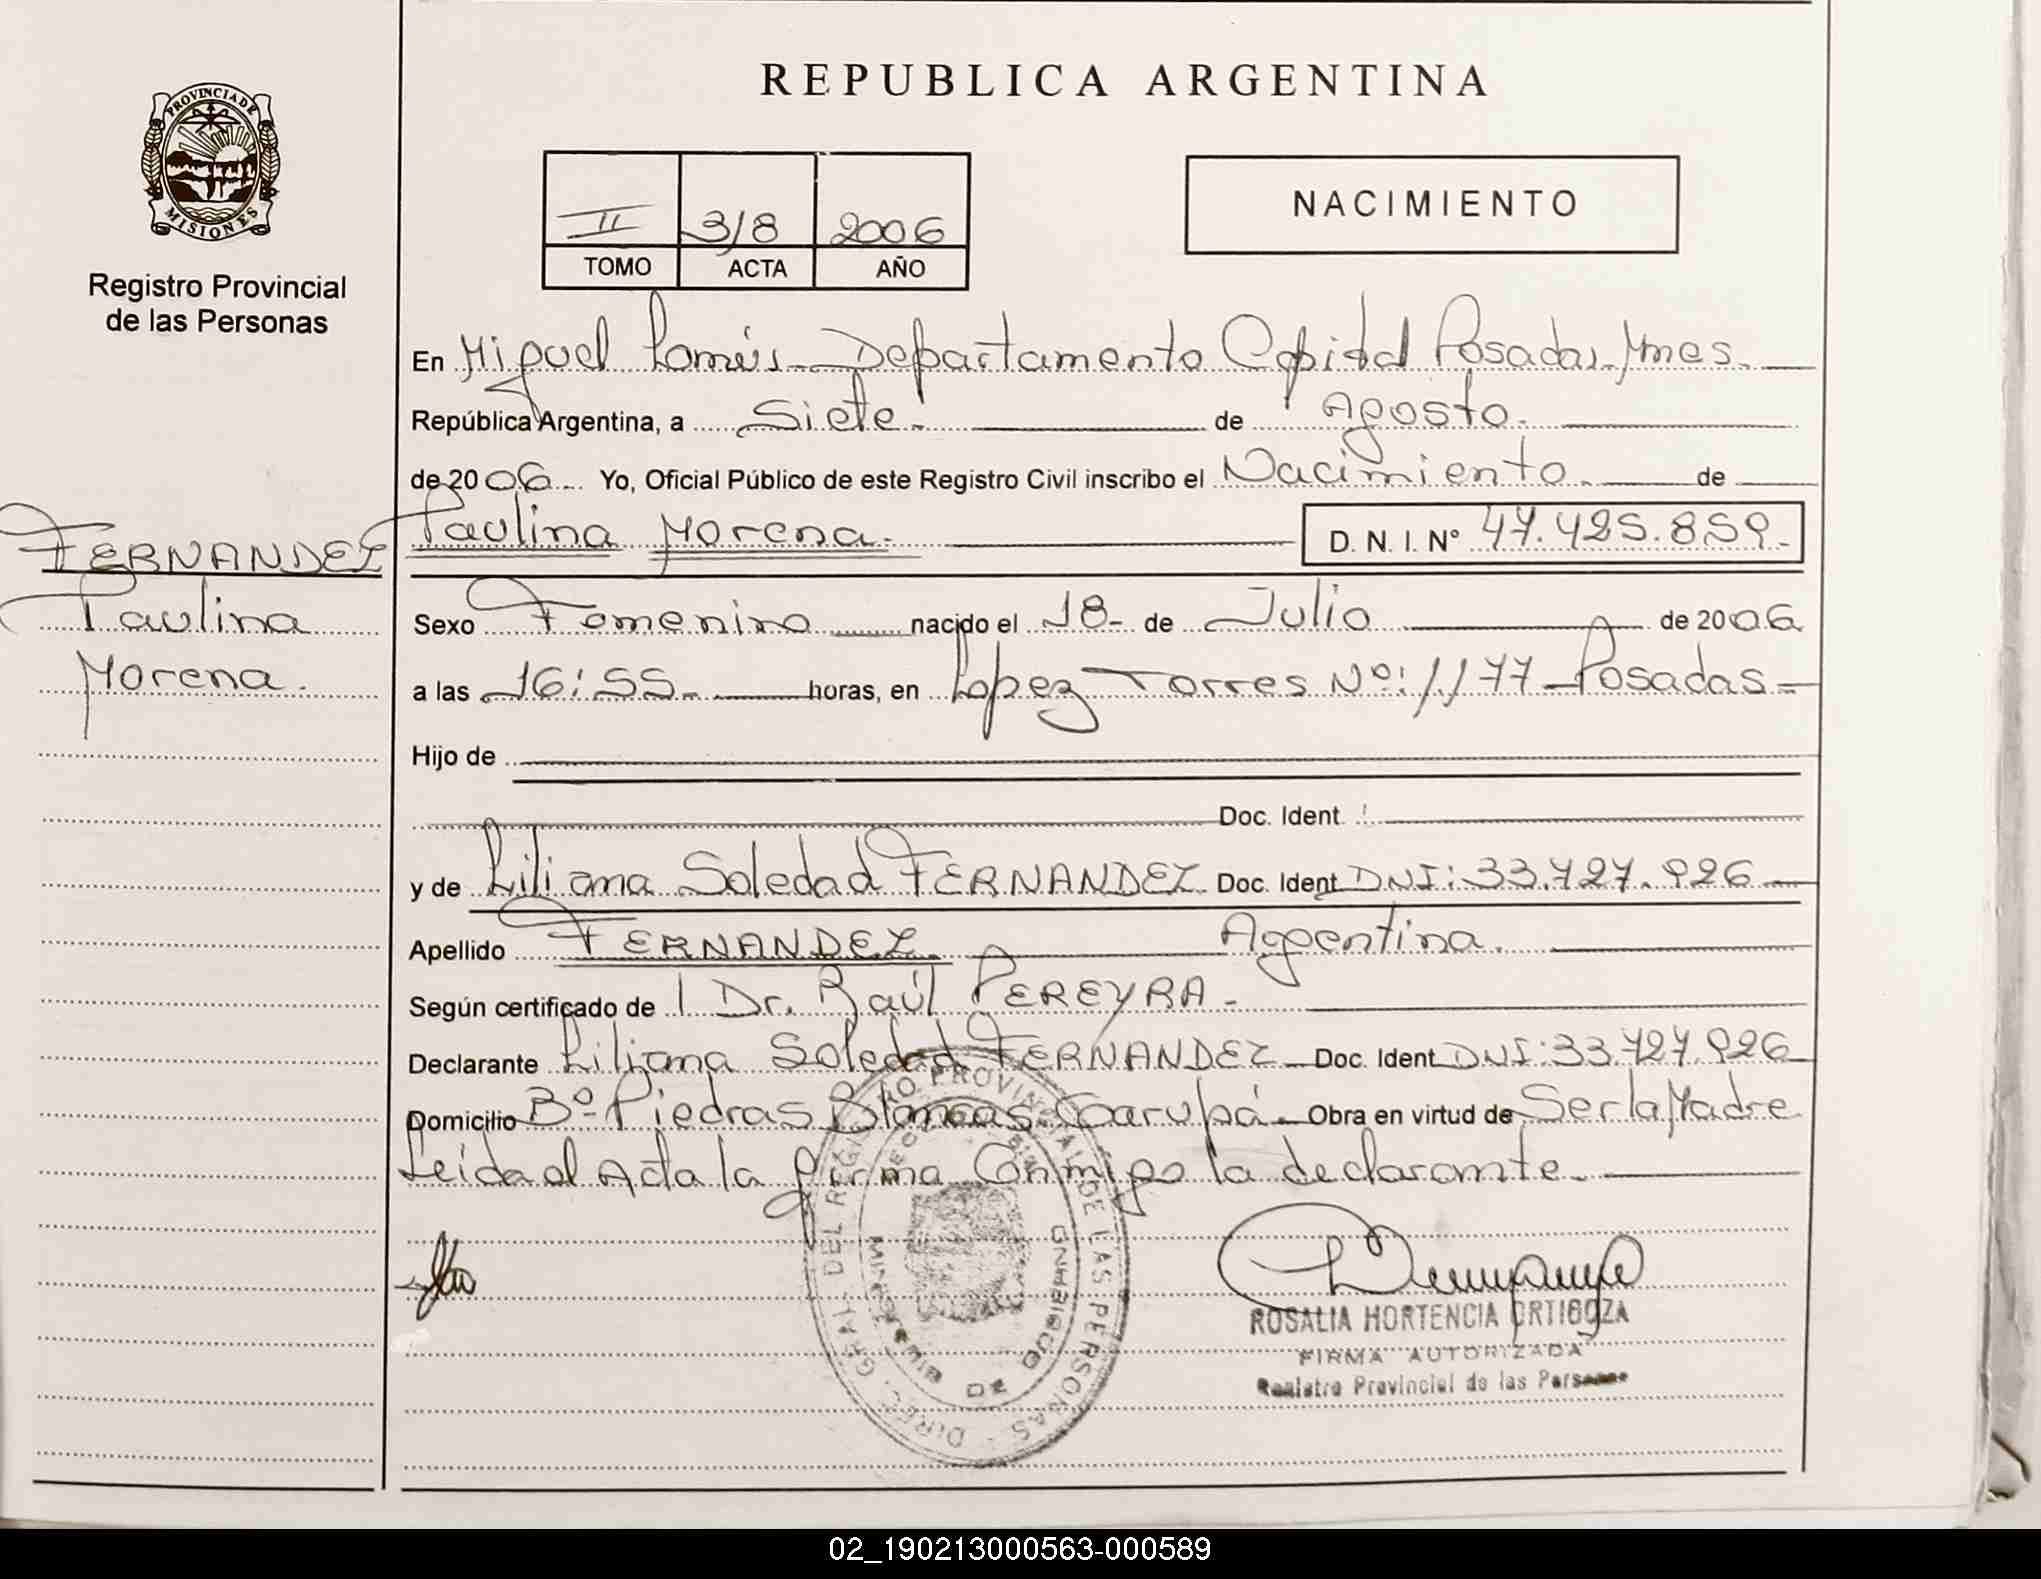 PROVINCIA DE
MISIONES
Registro Provincial
de las Personas
FERNANDEZ
Paulina
Morena.
REPUBLICA ARGENTINA
II 3/8 2006
TOMO ACTA AÑO
NACIMIENTO
En Miguel Lanús - Departamento Capital Posadas, Mnes.
República Argentina, a Siete. de Agosto.
de 2006 Yo, Oficial Público de este Registro Civil inscribo el Nacimiento. de
Paulina Morena. D. N. I. Nº 47.425.859.
Sexo Femenino nacido el 18 de Julio de 2006
a las 16:55 horas, en Lopez Torres Nº: 1177 - Posadas -
Hijo de
Doc. Ident.
y de Liliana Soledad FERNANDEZ Doc. Ident. DNI: 33.727.926
Apellido FERNANDEZ Argentina.
Según certificado de Dr. Raúl PEREYRA -
Declarante Liliana Soledad FERNANDEZ Doc. Ident. DNI: 33.727.926
Domicilio Bº Piedras Blancas Garupá. Obra en virtud de Ser la Madre
Leida el Acta la firma Conmigo la declarante.
DIREC. GRAL. DEL REGISTRO PROVINCIAL DE LAS PERSONAS
ROSALIA HORTENCIA ORTIGOZA
FIRMA AUTORIZADA
Registro Provincial de las Personas
02_190213000563-000589